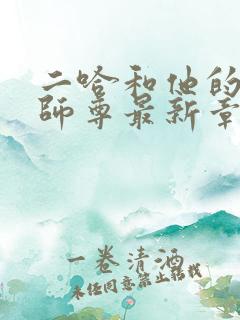 二哈和他的
師尊最新章
一卷清酒
未经同意禁止转载